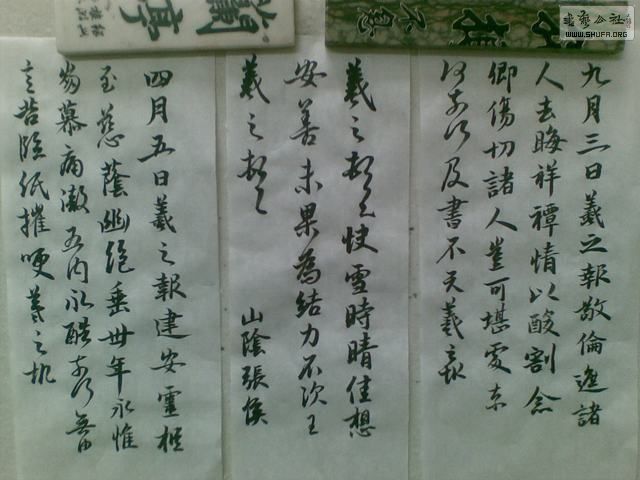 書藝公社
WWW.SHUFA.ORG
蘭亭
九月三日羲之報敬倫遮諸
人去晦祥禫情以酸割念
卿傷切諸人豈可堪處奈
何奈何及書不次羲報
羲之頓首快雪時晴佳想
安善未果為結力不次王
羲之頓首
山陰張侯
四月五日羲之報建安靈柩
至慈蔭幽絕垂卅年永惟
崩慕痛徹五內永酷奈何無由
言苦臨紙摧哽羲之報